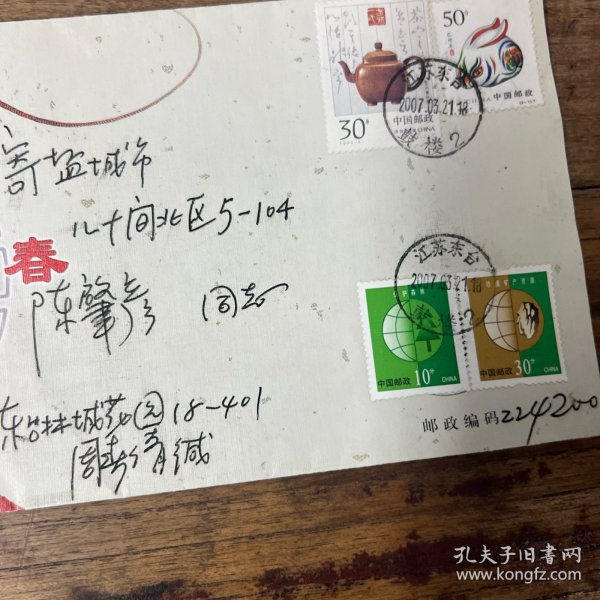 50分
中国邮政
30分
中国邮政
CHINA
江苏东台
2007.03.21.18
鼓楼2
寄盐城市
八十间北区5-104
春
陈肇彦 同志
江苏东台
2007.03.21.18
中国邮政 10分 CHINA
中国邮政 30分 CHINA
东台林城花园18-401
缄
邮政编码224200
孔夫子旧书网
www.kongfz.com